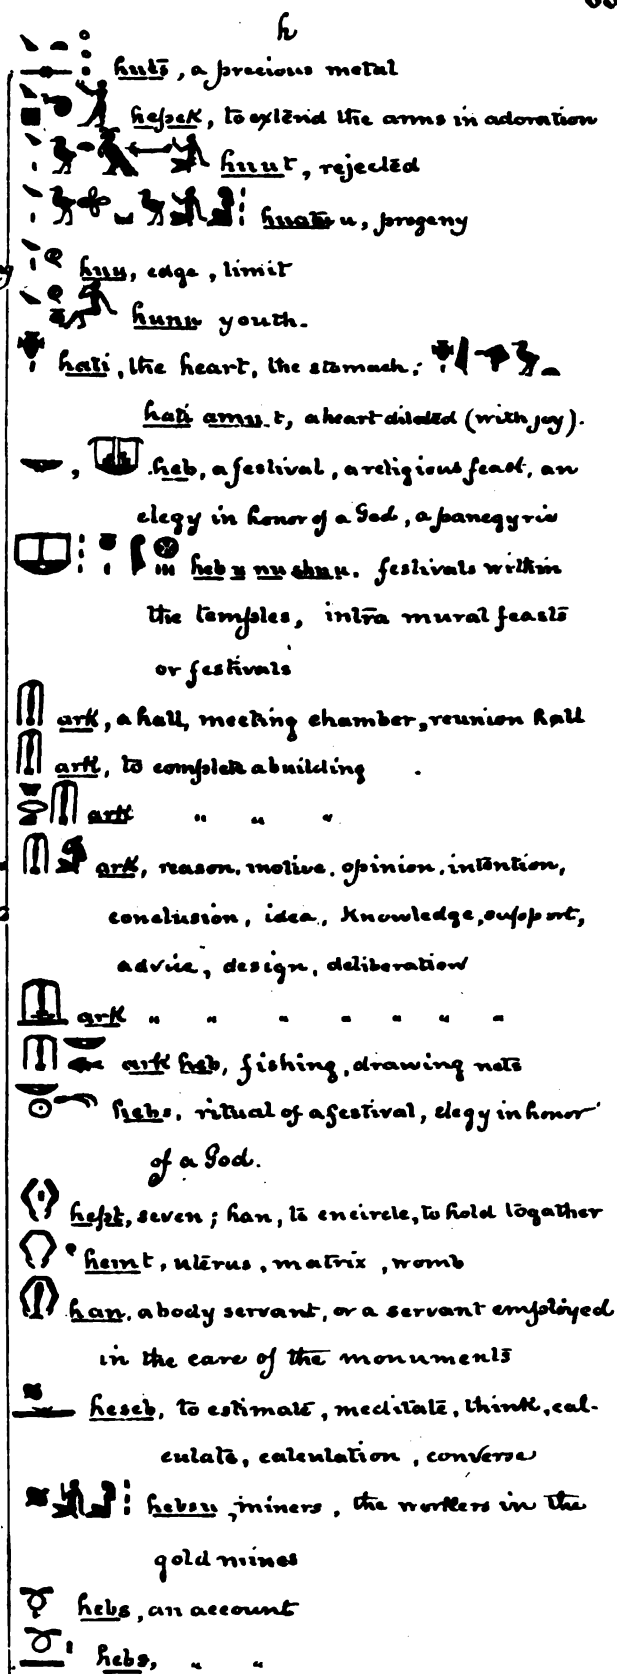 h
huts, a precious metal
hepek, to extend the arms in adoration
huut, rejected
huatu u, progeny
huu, edge, limit
hunu youth.
hati, the heart, the stomach;
hati amu t, a heart dilated (with joy).
, heb, a festival, a religious feast, an
elegy in honor of a God, a panegyric
heb u nu shnu. festivals within
the temples, intra mural feasts
or festivals
ark, a hall, meeting chamber, reunion hall
ark, to complete a building
ark " " "
ark, reason, motive, opinion, intention,
conclusion, idea, knowledge, support,
advice, design, deliberation
ark " " " " " " "
ark heb, fishing, drawing nets
hebs, ritual of a festival, elegy in honor
of a God.
hept, seven; han, to encircle, to hold togather
hemt, uterus, matrix, womb
han, a body servant, or a servant employed
in the care of the monuments
heseb, to estimate, meditate, think, cal-
culate, calculation, converse
hebsu, miners, the workers in the
gold mines
hebs, an account
hebs, " "